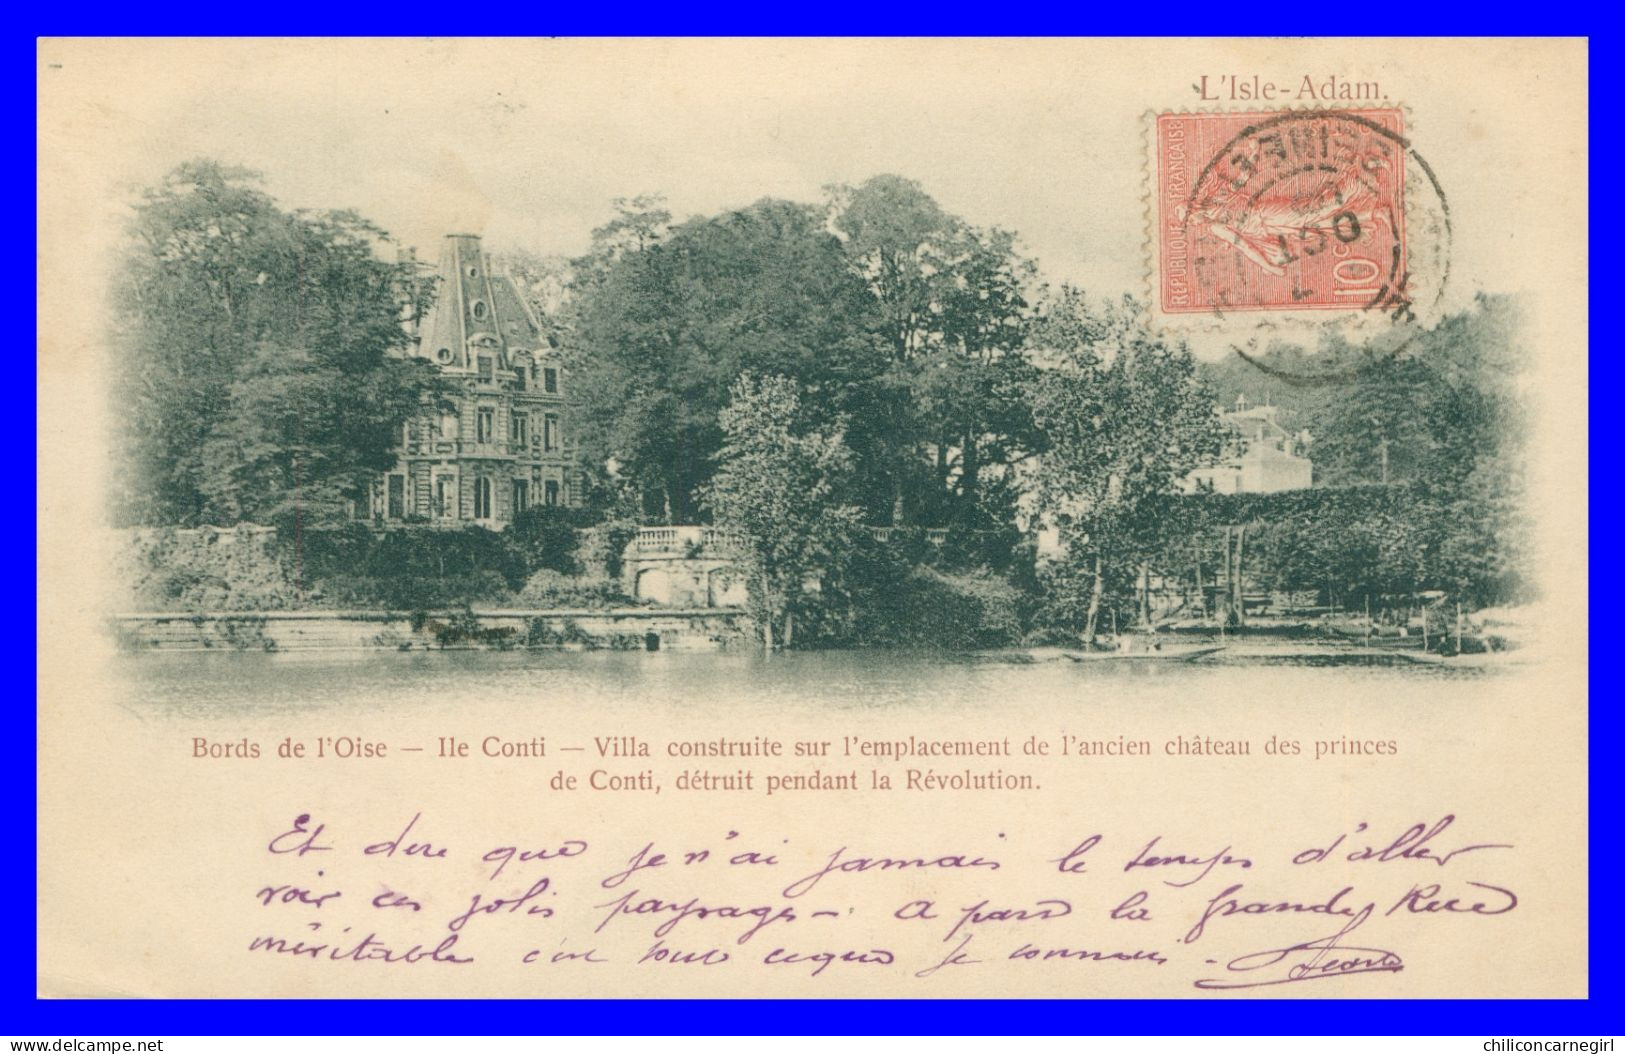 L'Isle-Adam.
REPUBLIQUE FRANÇAISE
10 C
SEINE-ET-
OCT
Bords de l'Oise — Ile Conti — Villa construite sur l'emplacement de l'ancien château des princes
de Conti, détruit pendant la Révolution.
Et dire que je n'ai jamais le temps d'aller
voir ces jolis paysages — A part la Grande Rue
inévitable c'est tout ce que je connais —
delcampe.net
chiliconcarnegirl